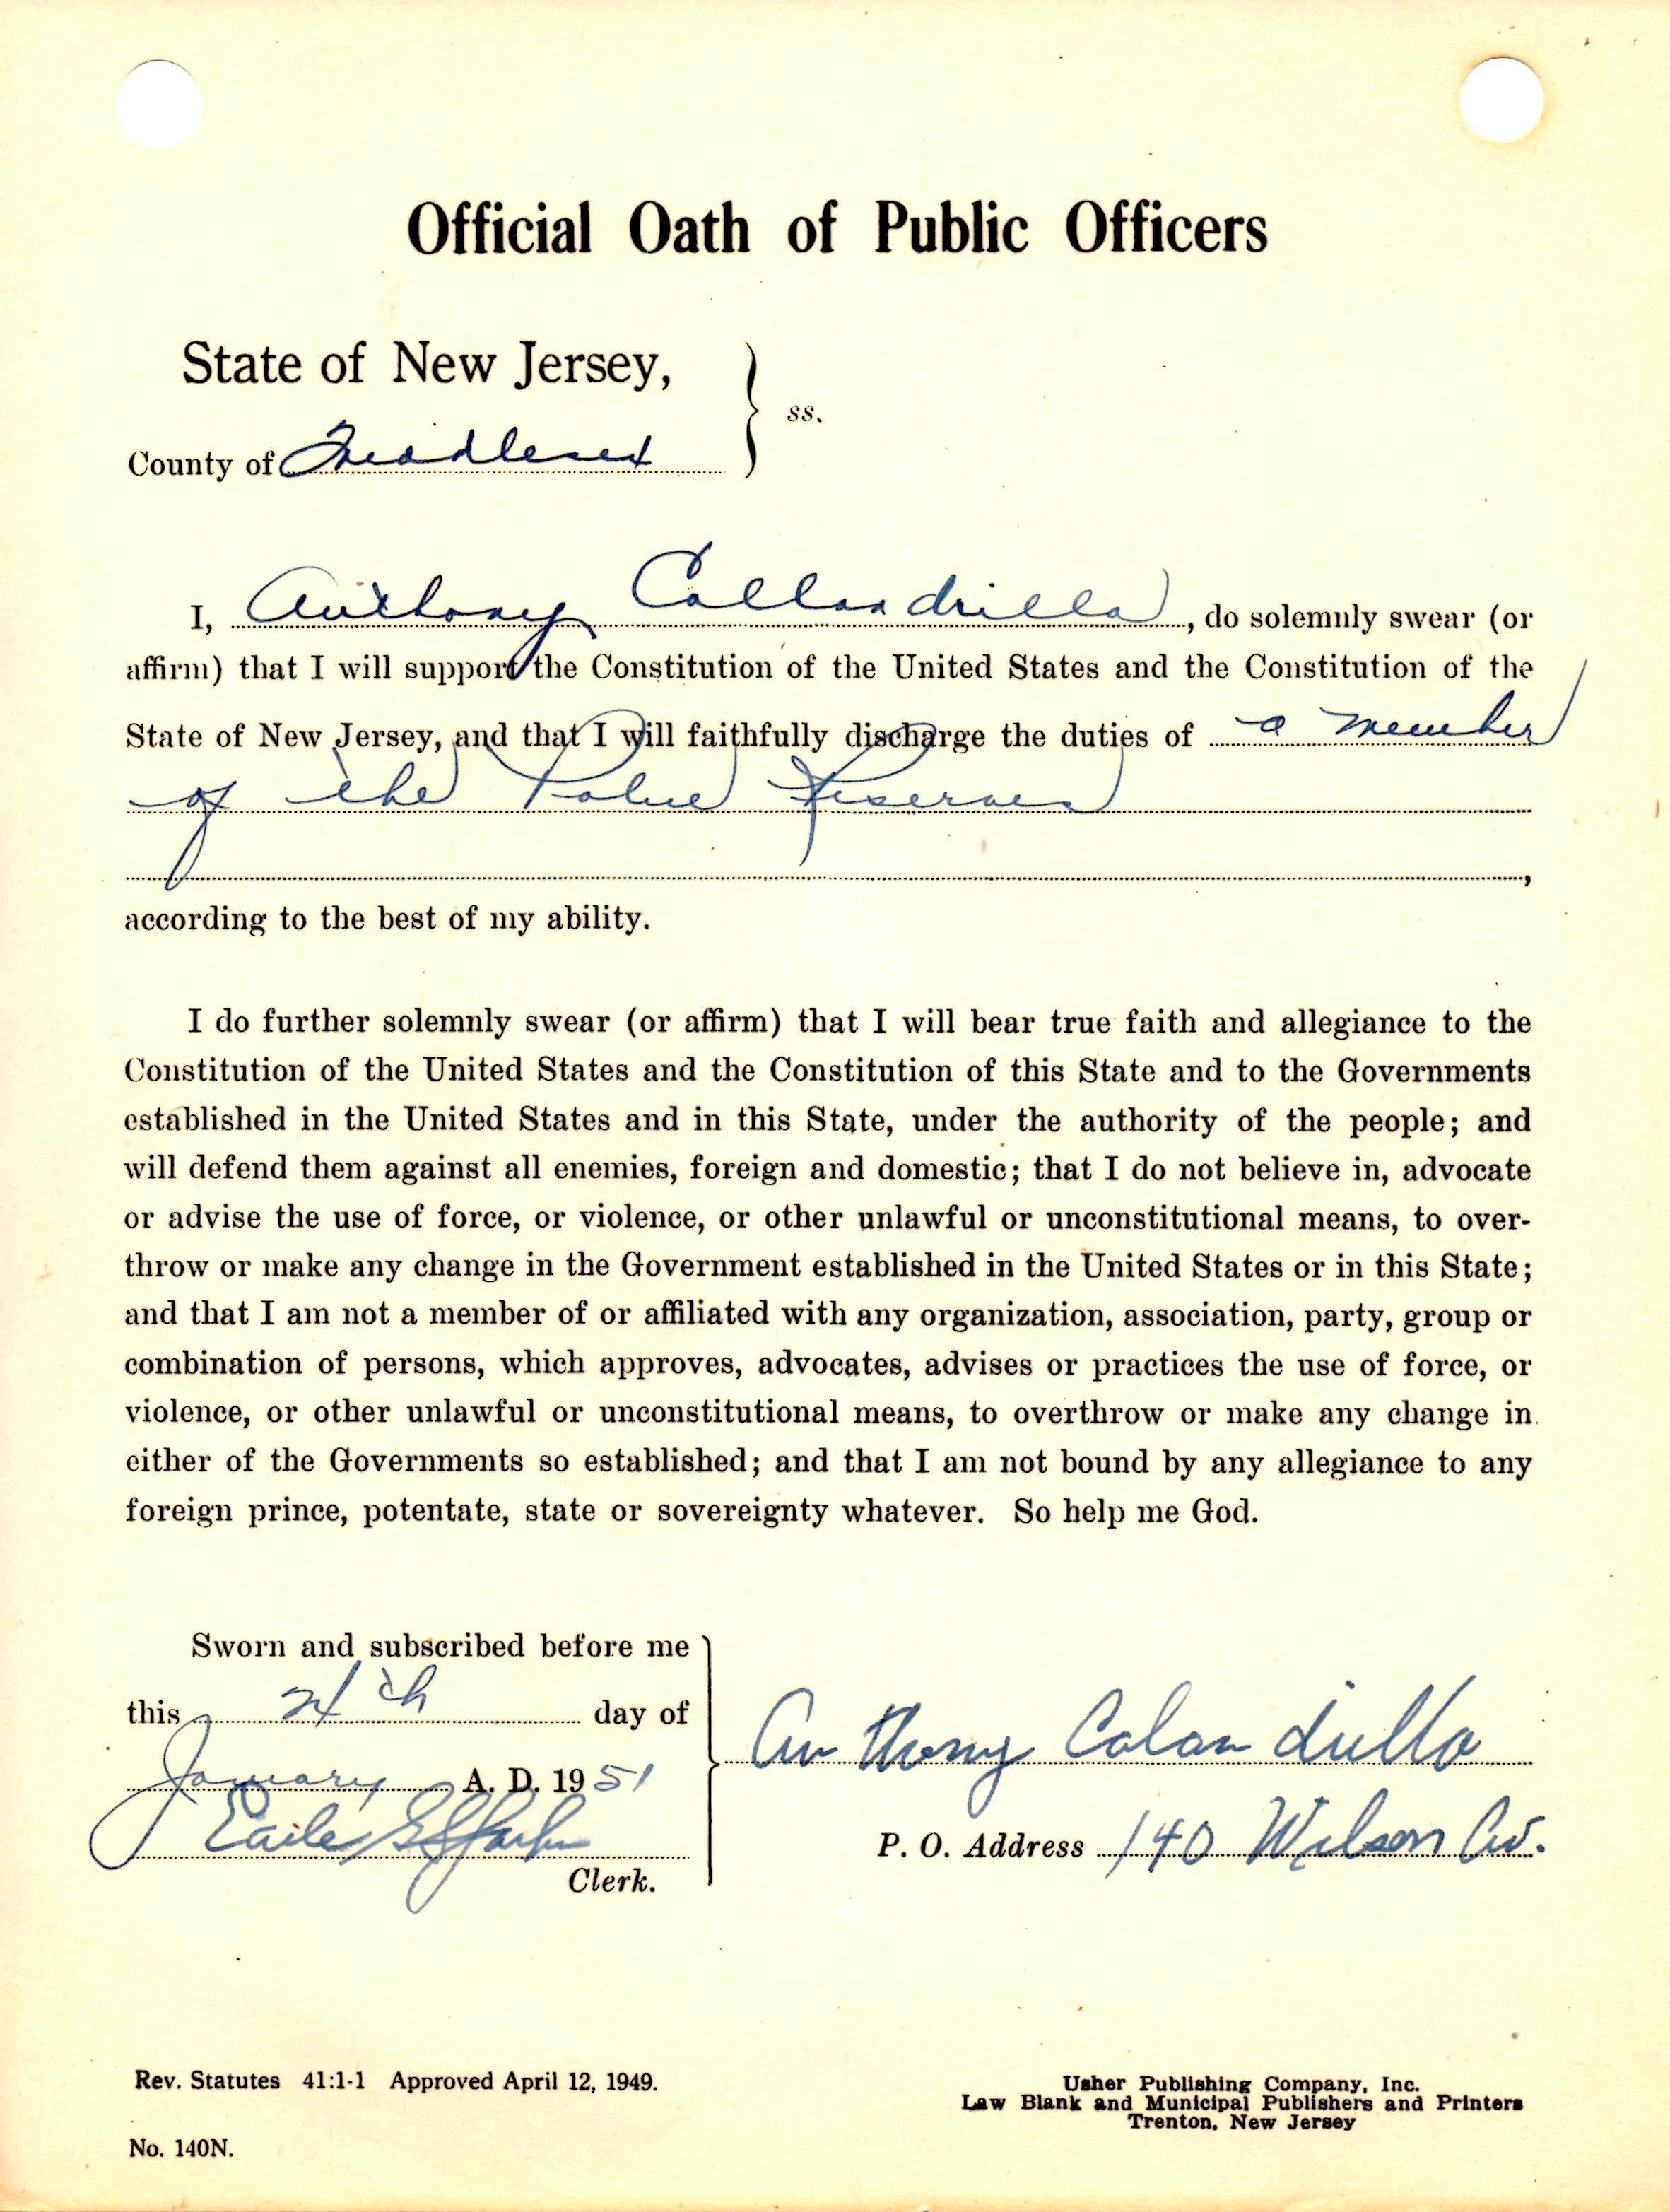 Official Oath of Public Officers
State of New Jersey,
ss.
County of Middlesex
I, Anthony Callandrillo, do solemnly swear (or
affirm) that I will support the Constitution of the United States and the Constitution of the
State of New Jersey, and that I will faithfully discharge the duties of a member
of the Police Reserves
,
according to the best of my ability.
I do further solemnly swear (or affirm) that I will bear true faith and allegiance to the
Constitution of the United States and the Constitution of this State and to the Governments
established in the United States and in this State, under the authority of the people; and
will defend them against all enemies, foreign and domestic; that I do not believe in, advocate
or advise the use of force, or violence, or other unlawful or unconstitutional means, to over-
throw or make any change in the Government established in the United States or in this State;
and that I am not a member of or affiliated with any organization, association, party, group or
combination of persons, which approves, advocates, advises or practices the use of force, or
violence, or other unlawful or unconstitutional means, to overthrow or make any change in
either of the Governments so established; and that I am not bound by any allegiance to any
foreign prince, potentate, state or sovereignty whatever. So help me God.
Sworn and subscribed before me
this day of
January A. D. 1951
Anthony Calandrillo
P. O. Address 140 Wilson Av.
Clerk.
Rev. Statutes 41:1-1 Approved April 12, 1949.
No. 140N.
Usher Publishing Company, Inc.
Law Blank and Municipal Publishers and Printers
Trenton, New Jersey